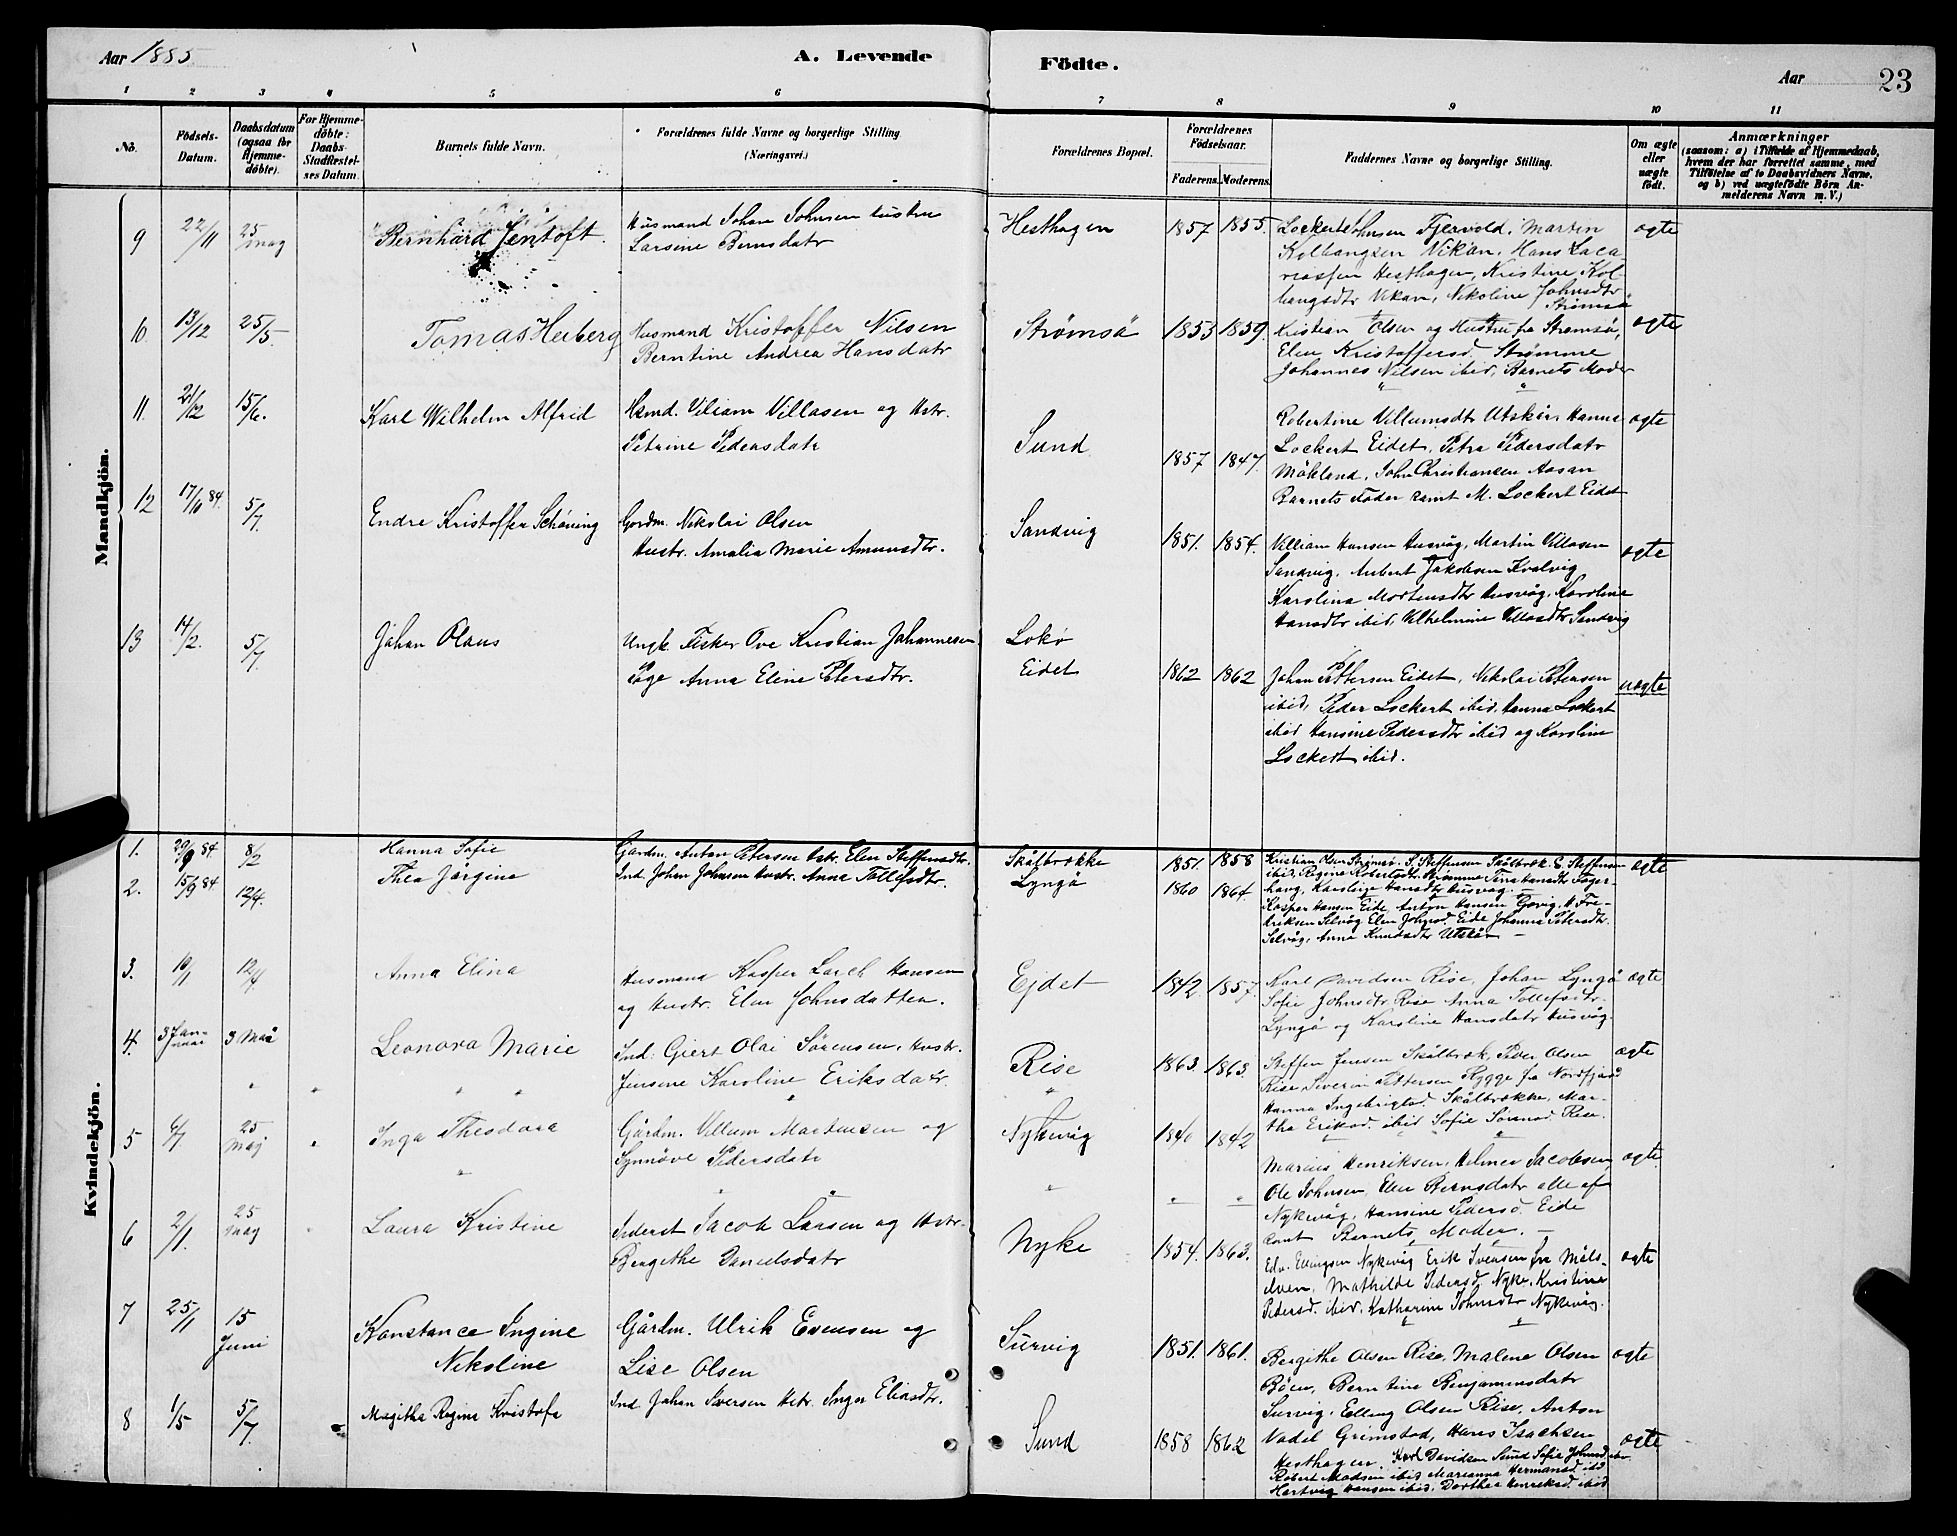 Aar 1885
A. Levende Födte.
Aar 23
1 2 3 4 5 6 7 8 9 10 11
No.
Födsels-Datum.
Daabsdatum (ogsaa for Hjemme-döbte).
For Hjemme-döbte: Daabs-Stadfæstel-ses Datum.
Barnets fulde Navn.
Forældrenes fulde Navne og borgerlige Stilling (Næringsvei.)
Forældrenes Bopæl.
Forældrenes Födselsaar.
Faderens. Moderens.
Faddernes Navne og borgerlige Stilling.
Om ægte eller uægte födt.
Anmærkninger
(saasom: a) i Tilfælde af Hjemmedaab,
hvem der har forrettet samme, med
Tilföielse af to Daabsvidners Navne,
og b) ved uægtefödte Börn An-
melderens Navn m. V.)
Mandkjön.
9 22/11 25 may Bernhard Jentoft. Husmand Johan Johnsen Hustru
Larsine Bernsdatr
Hesthagen 1857 1855. Martin ægte
Vikan, Hans
Hesthagen, Kristine Kol-
Vikan, Nikoline Johnsdtr
Strømsö
10 13/12 25/5. Tomas Heiberg Husmand Kristoffer Nilsen
Berntine Andrea Hansdatr
Strømsö 1853 1859. Kristian Olsen og Hustru fra Strømsö, ægte
Elen Kristoffersd. Strømme
Johannes Nilsen ibid, Barnets Moder
11. 21/12 15/6. Karl Wilhelm Alfrid Hsmd. Viliam Villasen og Hstr.
Petrine Pedersdatr
Sund 1857 1847. Robertine Villumsdtr Utskår, Hanna ægte
Lockert Eidet, Petra Pedersdatr
John Christiansen Aasan
Barnets Fader samt M. Lockert Eidet
12 17/10 84. 5/7. Endre Kristoffer Schöning Gardm. Nikolai Olsen
Hustr. Amalia Marie Amundsdtr.
Sandvig 1851. 1854. Villiam Hansen Husvåg, Martin Villasen ægte
Sandvig, Jakobsen Kvalvig
Karolina Mortensdtr Husvåg, Karoline
Hansdtr ibid, Vilhelmine Villasdtr Sandvig
13 14/2. 5/7 Johan Olaus Ungk. Fisker Ove Kristian Johannesen
Pige Anna Eline Petersdtr.
Lokø
Eidet 1862 1862 Johan Pettersen Eidet, Nikolai Petersen uægte
ibid, Peder Lockert ibid, Hanna Lockert
ibid Hansine Pedersdtr ibid og Karoline
Lockert ibid.
Kvindekjön.
1. 29/9 84 8/2 Hanna Sofie Gårdm. Anton Petersen Hstr. Elen Steffensdtr.
Skålbrække 1851. 1858 Kristian Olsen Strømsö. S. Steffensen Skålbræk. E. Steffensen ægte
ibid, Regine Robertsdtr. Strömme Tina Hansdtr Fager-
hang, Karoline Hansdtr Husvåg. —
2. 15/9 84 12/4. Thea Jørgine Ind. Johan Johnsen Hustr. Anna Tollefsdtr.
Lyngö 1860 1864. Kasper Hansen Eide, Anton Hansen H. Fre-
driksen Selvåg Elen Johnsd. Eide Johanna Petersdtr.
Selvåg, Anna Knudsdtr Utskår —
3. 10/1 12/4 Anna Elina Husmand Kasper Larch Hansen
og Hustr. Elen Johnsdatter.
Ejdet 1842 1857. Karl Davidsen Rise, Johan Lyngö ægte
Sofie Johnsdtr Rise Anna Tollefsdtr.
Lyngö og Karoline Hansdatr Husvåg.
4. 3 Januar 3 Mai Leonora Marie Ind: Giert Olai Sörensen, Hustr.
Jensine Karoline Eriksdatr.
Rise 1863. 1863. Steffen Jensen Skålbræk, Peder Olsen ægte
Rise Severin Pettersen Rygge fra Nordfjord
Hanna Ingebrigtsd. Skålbrække, Mar-
tha Eriksd. ibid Sofie Sörensd. Rise.
5 6/1 25 Maj Inga Theodora Gårdm. Villum Martinsen og
Synnöve Pedersdatr
Nykvåg 1840 1842 Marius Henriksen, Helmer Jacobsen, ægte.
Ole Johnsen, Elen Berntsdatr alle af
Nykvåg, Hansine Pedersd. Eide
samt Barnets Moder. —
6 2/1. 25 Maj Laura Kristine Inderst Jacob Larsen og Hstr.
Bergithe Danielsdatr
Nyke 1854. 1863. Edv. Ellingsen Nykvåg Erik Ivensen fra Måls-
elven, Mathilde Pedersd. Nyke, Kristine ægte
Pedersd. ibid. Katharine Johnsdtr Nykvåg.
7 25/1 15 Juni Konstance Ingine
Nikoline
Gårdm. Ulrik Evensen og
Lise Olsen
Survig 1851. 1861. Bergithe Olsen Rise, Malene Olsen ægte
Böen, Berntine Benjaminsdatr
Survig, Elling Olsen Rise, Anton
Vadel Grimstad, Hans Isachsen
Hesthagen.
8 1/5 5/7. Magitha Regine Kristofa Ind. Johan Iversen Hstr. Inger Eliasdtr.
Sund 1858 1862 Karl Davidsen Sund Sofie Johnsd. ibid ægte
Robert Madsen ibid Marianna Hermansd. ibid
Hartvig Hansen ibid, Dorthea Henriksd. ibid